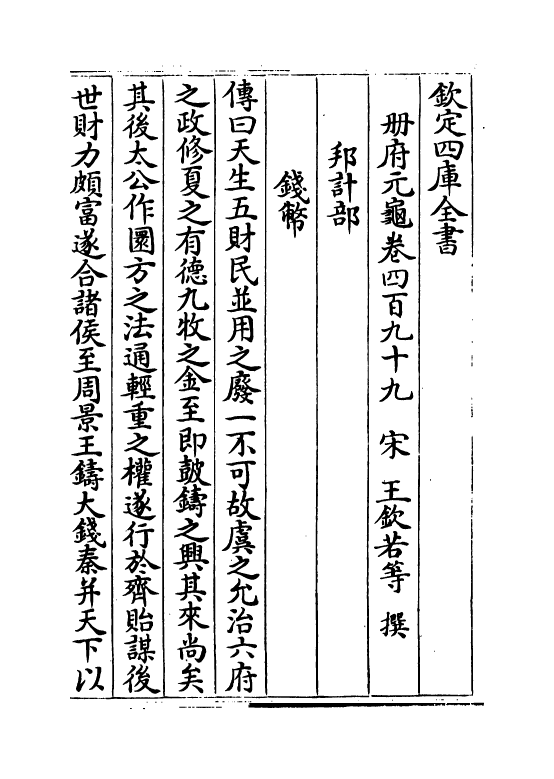 欽定四庫全書
册府元龜卷四百九十九　宋　王欽若等　撰
邦計部
錢幣
傳曰天生五財民並用之廢一不可故虞之允治六府
之政修夏之有德九牧之金至即鼓鑄之興其來尚矣
其後太公作圜方之法通輕重之權遂行於齊貽謀後
世財力頗富遂合諸侯至周景王鑄大錢秦并天下以